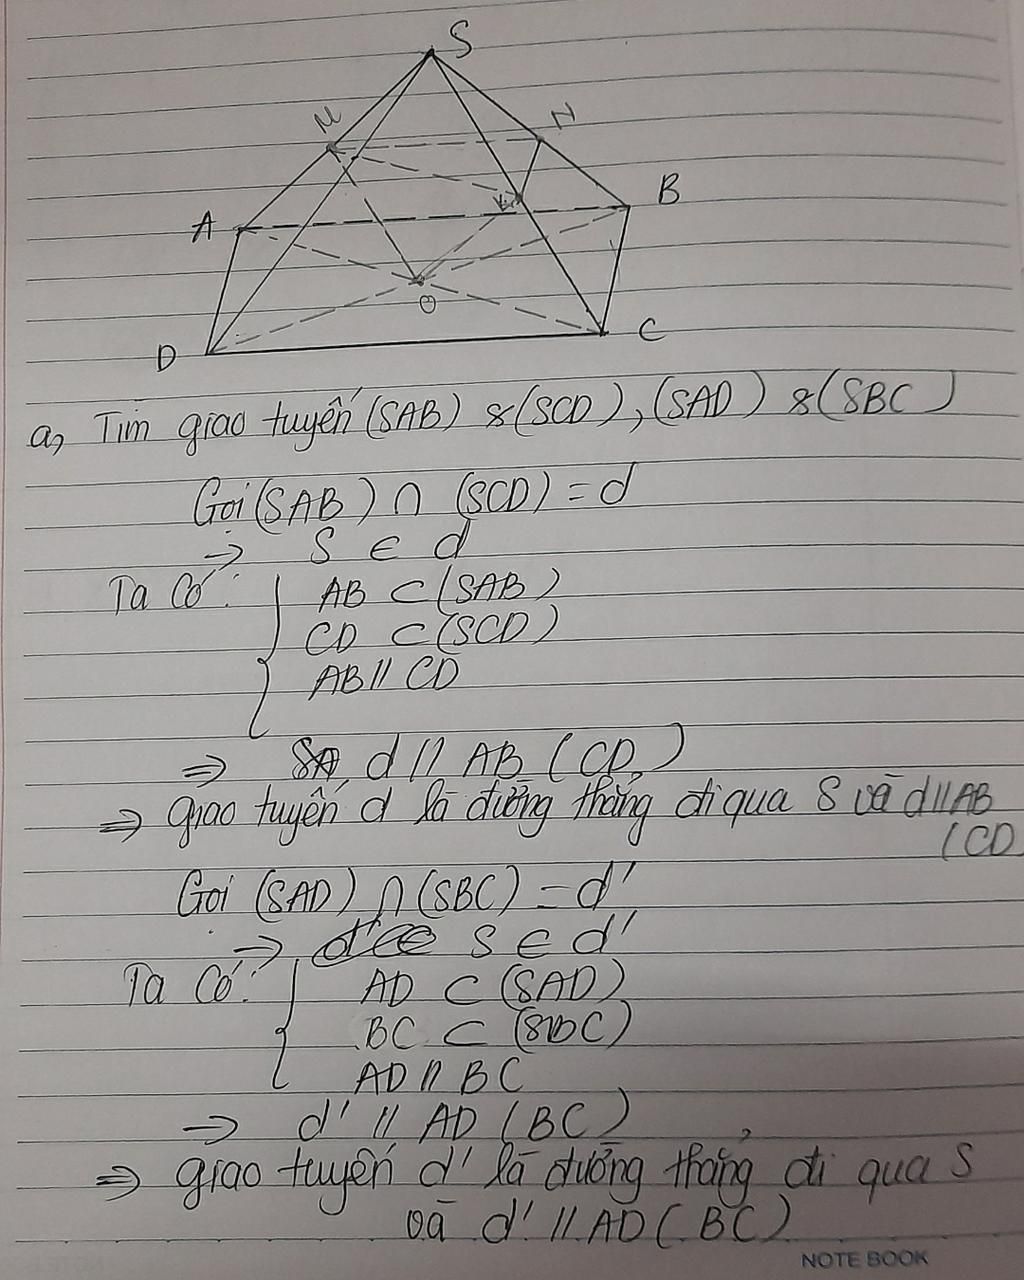 S
M
N
A
B
K
O
D
C
a, Tìm giao tuyến (SAB) & (SCD), (SAD) & (SBC)
Gọi (SAB) ∩ (SCD) = d
→ S ∈ d
Ta có: { AB ⊂ (SAB)
CD ⊂ (SCD)
AB // CD
⇒ d // AB (CD)
⇒ giao tuyến d là đường thẳng đi qua S và d // AB
(CD
Gọi (SAD) ∩ (SBC) = d'
→ S ∈ d'
Ta có: { AD ⊂ (SAD)
BC ⊂ (SBC)
AD // BC
→ d' // AD (BC)
⇒ giao tuyến d' là đường thẳng đi qua S
và d' // AD (BC)
NOTE BOOK